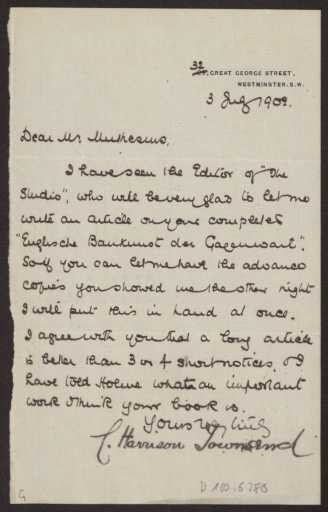 32
GREAT GEORGE STREET,
WESTMINSTER. S.W.
3 July 1902.
Dear Mr. Muthesius,
I have seen the Editor of "The
Studio", who will be very glad to let me
write an article on your complete
"Englische Baukunst der Gegenwart".
So if you can let me have the advance
copies you showed me the other night
I will put this in hand at once.
I agree with you that a long article
is better than 3 or 4 short notices. & I
have told Holme what an important
work I think your book is.
Yours very truly
C. Harrison Townsend